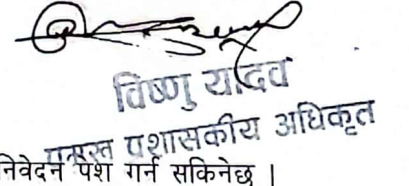 विष्णु यादव
प्रशासकीय अधिकृत
निवेदन पेश गर्न सकिनेछ ।